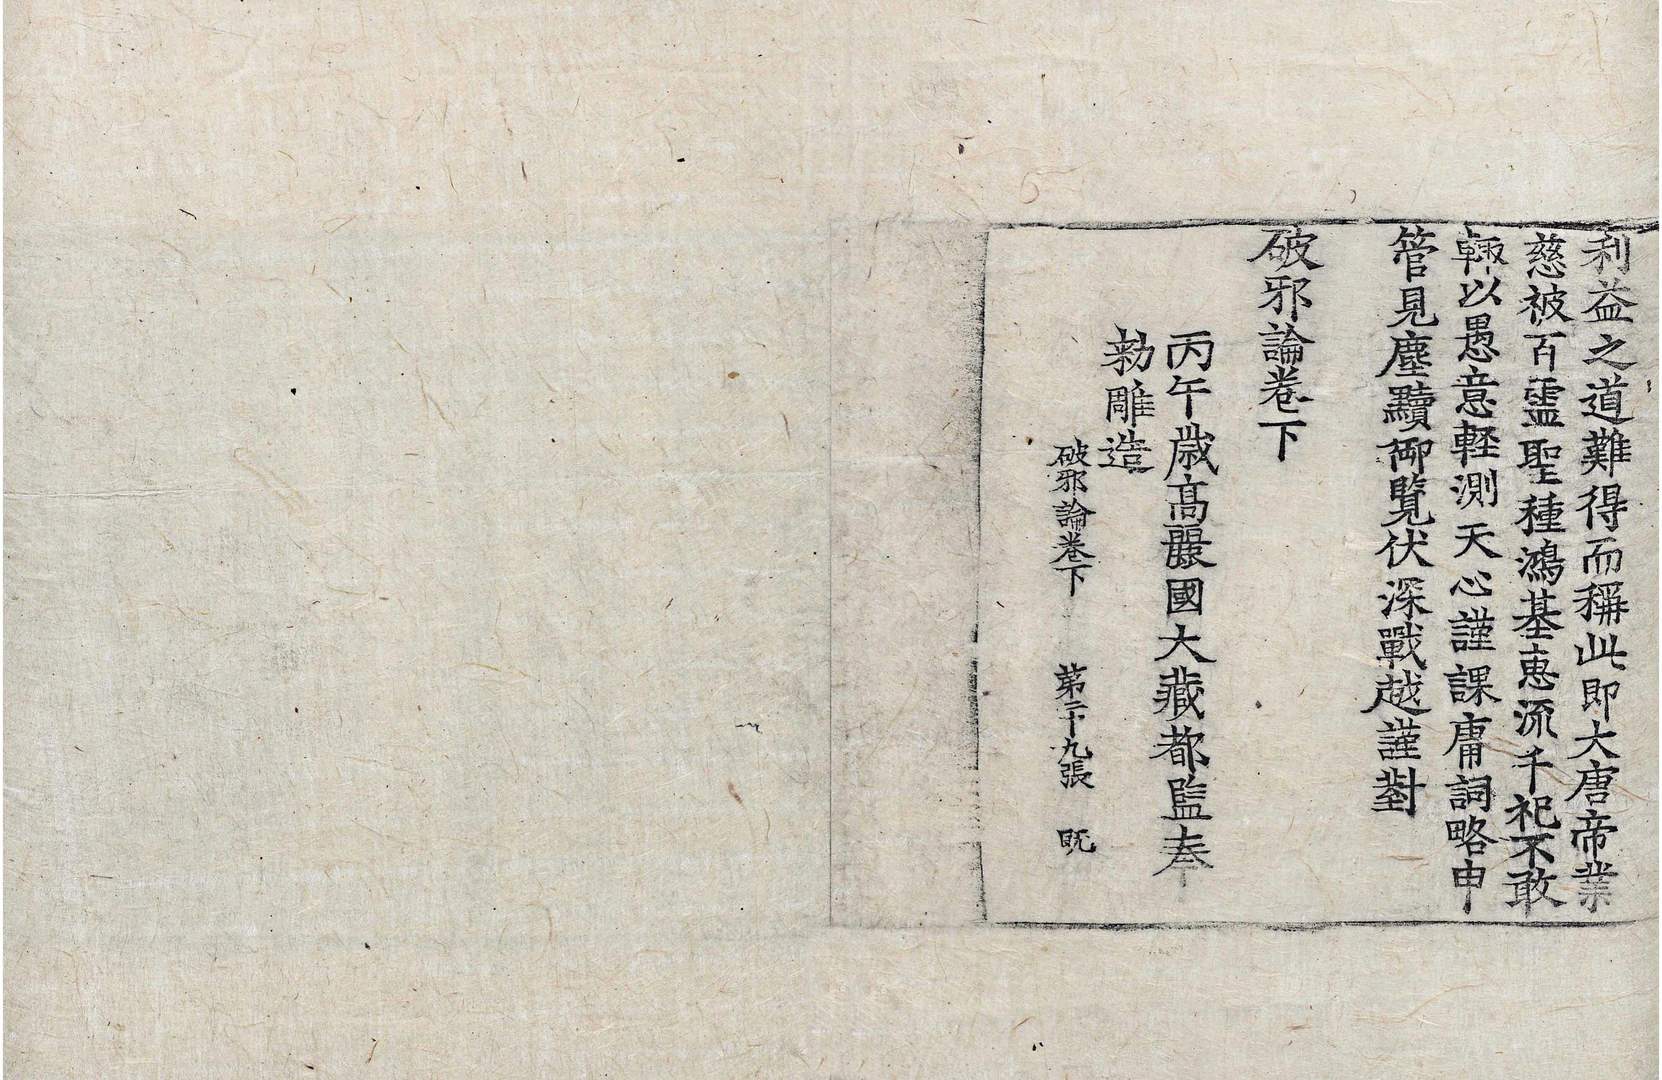 利益之道難得而稱此即大唐帝業
慈被百靈聖種鴻基惠流千祀不敢
輙以愚意輕測天心謹課庸詞略申
管見塵黷御覽伏深戰越謹對
破邪論卷下
丙午歲高麗國大藏都監奉
勑雕造
破邪論卷下 第二十九張 既